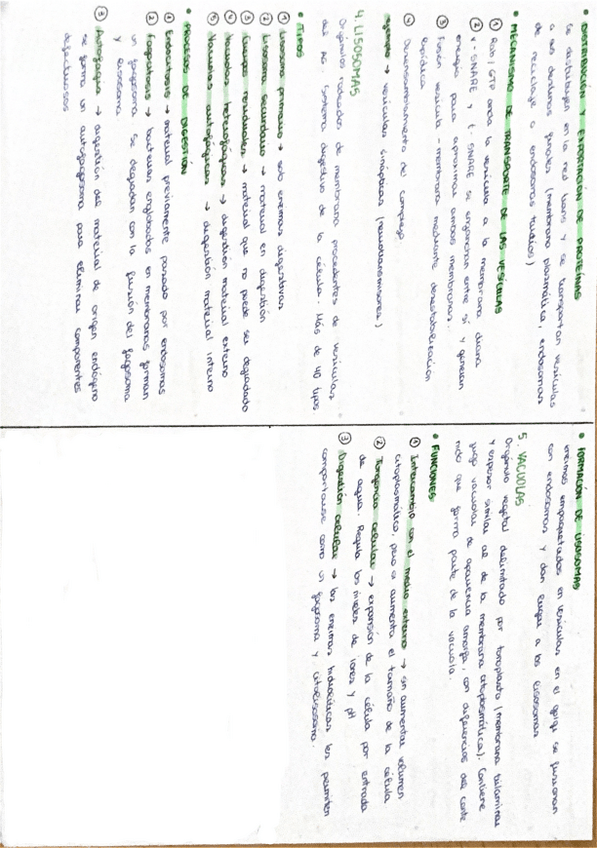 • DISTRIBUCIÓN Y EXPORTACIÓN DE PROTEÍNAS
Se distribuyen en la red trans y se transportan vesículas
a sus destinos finales (membrana plasmática, endosomas
de reciclaje o endosomas tardíos)
• MECANISMO DE TRANSPORTE DE LAS VESÍCULAS
① Rab / GTP ancla la vesícula a la membrana diana
② v-SNARE y t-SNARE se enganchan entre sí y generan
energía para aproximar ambas membranas.
③ Fusión vesícula - membrana mediante desestabilización
lipídica
④ Desensamblamiento del complejo
ejemplo → vesículas sinápticas (neurotransmisores)
4. LISOSOMAS
Orgánulos rodeados de membrana procedentes de vesículas
del AG. Sistema digestivo de la célula. Más de 40 tipos
• TIPOS
① Lisosoma primario → solo enzimas digestivas
② Lisosoma secundario → material en digestión
③ Cuerpos residuales → material que no puede ser degradado
④ Vacuolas heterofágicas → digestión material externo
⑤ Vacuolas autofágicas → digestión material interno
• PROCESOS DE DIGESTIÓN
① Endocitosis → material previamente pasado por endosomas
② Fagocitosis → bacterias englobadas en membranas forman
un fagosoma. Se degradan con la fusión del fagosoma
y lisosoma
③ Autofagia → digestión del material de origen endógeno
se forma un autofagosoma para eliminar componentes
defectuosos
• FORMACIÓN DE LISOSOMAS
enzimas empaquetadas en vesículas en el golgi se fusionan
con endosomas y dan lugar a los lisosomas
5. VACUOLAS
Orgánulo vegetal delimitado por tonoplasto (membrana bilaminar
y espesor similar al de la membrana citoplasmática). Contiene
jugo vacuolar de apariencia amorfa, con diferencias del conte
nido que forma parte de la vacuola.
• FUNCIONES
① Intercambio con el medio externo → sin aumentar volumen
citoplasmático, pero si aumenta el tamaño de la célula
② Turgencia celular → expansión de la célula por entrada
de agua. Regula los niveles de iones y pH
③ Digestión celular → las enzimas hidrolíticas les permiten
comportarse como un fagosoma y citolisosoma.